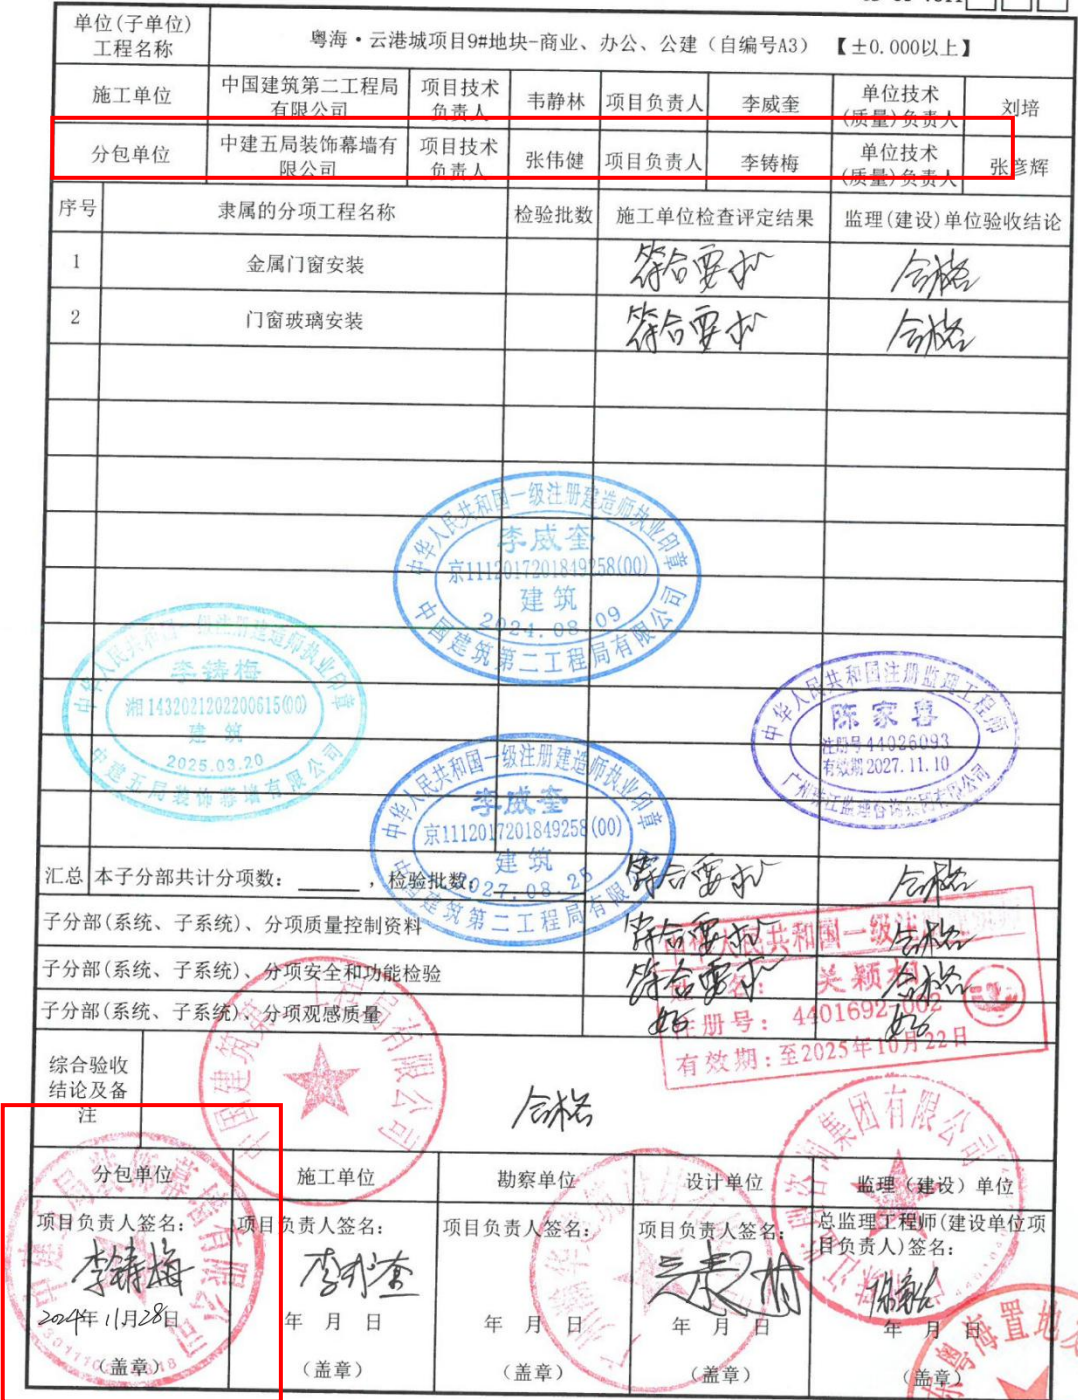 单位(子单位)
工程名称
粤海·云港城项目9#地块-商业、办公、公建（自编号A3） 【±0.000以上】
施工单位
中国建筑第二工程局
有限公司
项目技术
负责人
韦静林
项目负责人
李威奎
单位技术
(质量)负责人
刘培
分包单位
中建五局装饰幕墙有
限公司
项目技术
负责人
张伟健
项目负责人
李铸梅
单位技术
(质量)负责人
张彦辉
序号 隶属的分项工程名称 检验批数 施工单位检查评定结果 监理(建设)单位验收结论
1 金属门窗安装 符合要求 合格
2 门窗玻璃安装 符合要求 合格
中华人民共和国一级注册建造师执业印章
李威奎
京1112017201849258(00)
建筑
2024.08.09
中国建筑第二工程局有限公司
中华人民共和国一级注册建造师执业印章
李铸梅
湘1432021202200615(00)
建筑
2025.03.20
中建五局装饰幕墙有限公司
中华人民共和国注册监理工程师
陈家喜
注册号44026093
有效期2027.11.10
中华人民共和国一级注册建造师执业印章
李威奎
京1112017201849258(00)
建筑
2027.08.25
中国建筑第二工程局有限
汇总 本子分部共计分项数： ，检验批数： 符合要求 合格
子分部(系统、子系统)、分项质量控制资料 符合要求 合格
子分部(系统、子系统)、分项安全和功能检验 符合要求 合格
子分部(系统、子系统)、分项观感质量 好 好
人民共和国一级注
名：关颖
册号：4401692-002
有效期：至2025年10月22日
综合验收
结论及备
注
合格
分包单位 施工单位 勘察单位 设计单位 监理（建设）单位
项目负责人签名： 项目负责人签名： 项目负责人签名： 项目负责人签名： 总监理工程师(建设单位项
目负责人)签名：
李铸梅 李威奎
2024年11月28日 年 月 日 年 月 日 年 月 日 年 月 日
（盖章） （盖章） （盖章） （盖章） （盖章）
粤海置地